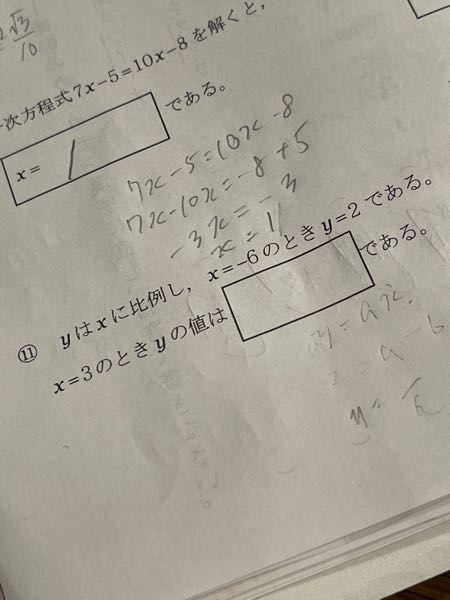 √3
10
次方程式7x－5＝10x－8を解くと，
x＝1
である。
7x－5＝10x－8
7x－10x＝－8＋5
－3x＝－3
x＝1
⑪ yはxに比例し，x＝－6のときy＝2である。
x＝3のときyの値は
である。